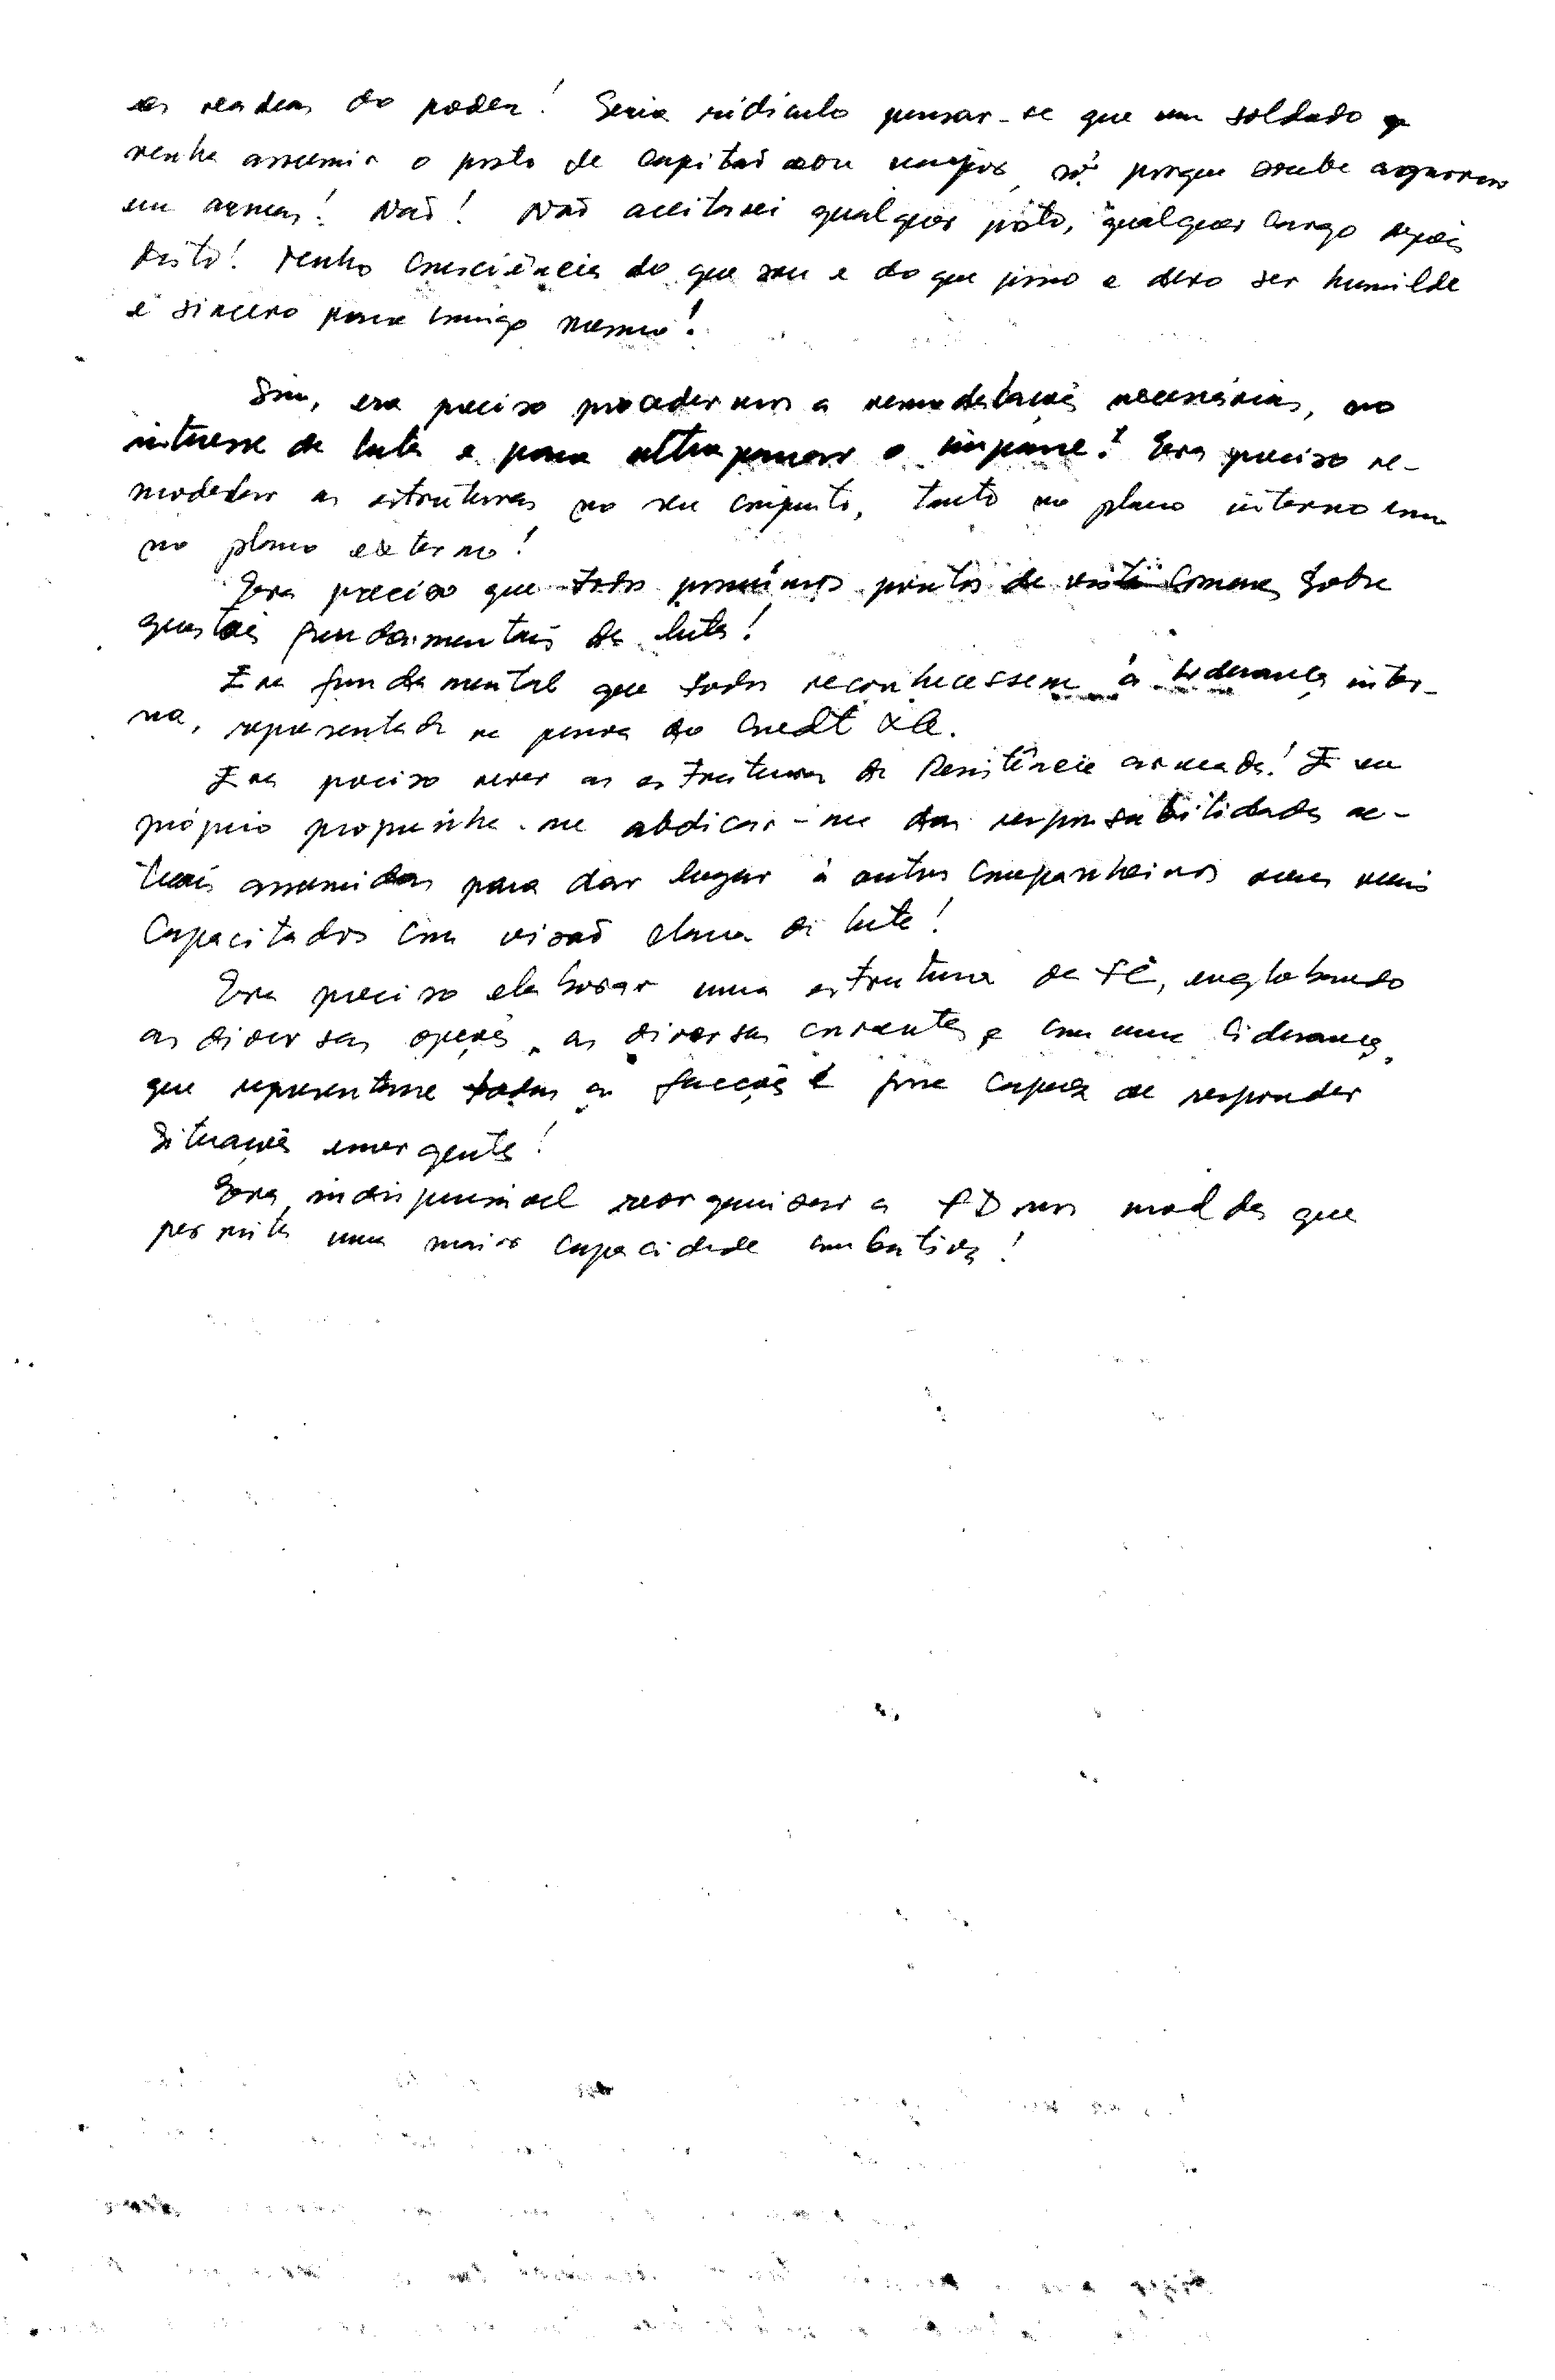 as rendeas do poder! Seria ridiculo pensar-se que um soldado
venha assumir o posto de capitaõ ou major, só porque soube agarrar
em armas! Naõ! Naõ aceitarei qualquer posto, qualquer cargo depois
disto! Tenho consciência do que sou e do que posso e devo ser humilde
e sincero para comigo mesmo!
Sim, era preciso procedermos a remodelações necessárias, no
interesse da luta e para ultrapassar o impasse! Era preciso re-
modelar as estruturas no seu conjunto, tanto no plano interno como
no plano externo!
Era preciso que todos possuímos pontos de vista comuns sobre
questões fundamentais da luta!
Era fundamental que todos reconhecessem a liderança inter-
na, representada na pessoa do Cmdt XG.
Era preciso rever as estruturas da Resistência armada! Eu
próprio propunha-me abdicar-me das responsabilidades ac-
tuais assumidas para dar lugar à outros companheiros mais
capacitados com visaõ clara da luta!
Era preciso elaborar uma estrutura da FC, englobando
as diversas opções, as diversas correntes e com uma liderança,
que representasse todas as facções e fosse capaz de responder
situações emergentes!
Era indispensável reorganizar a FD nos moldes que
permita uma maior capacidade combativa!